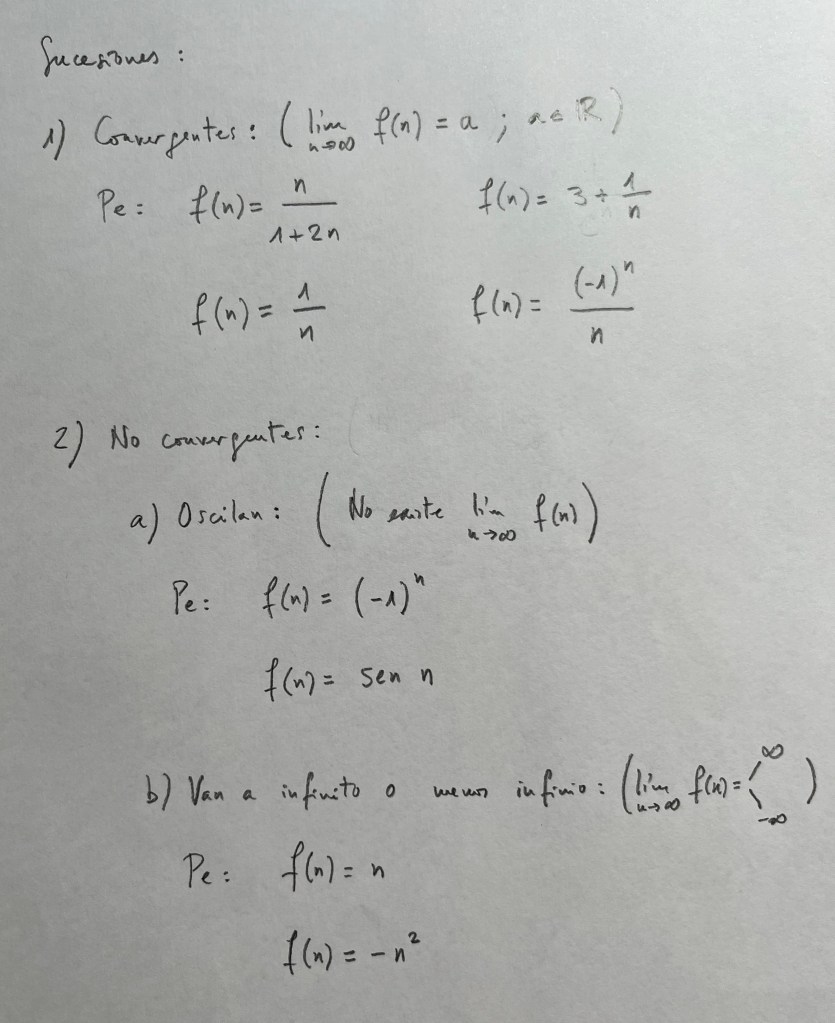 Sucesiones :
1) Convergentes : ( lim n→∞ f(n) = a ; a ∈ ℝ )
Pe : f(n) = n/(1+2n) f(n) = 3 + 1/n
f(n) = 1/n f(n) = (-1)^n/n
2) No convergentes :
a) Oscilan : ( No existe lim n→∞ f(n) )
Pe : f(n) = (-1)^n
f(n) = sen n
b) Van a infinito o menos infinio : ( lim n→∞ f(n) = < ∞ -∞ )
Pe : f(n) = n
f(n) = -n²